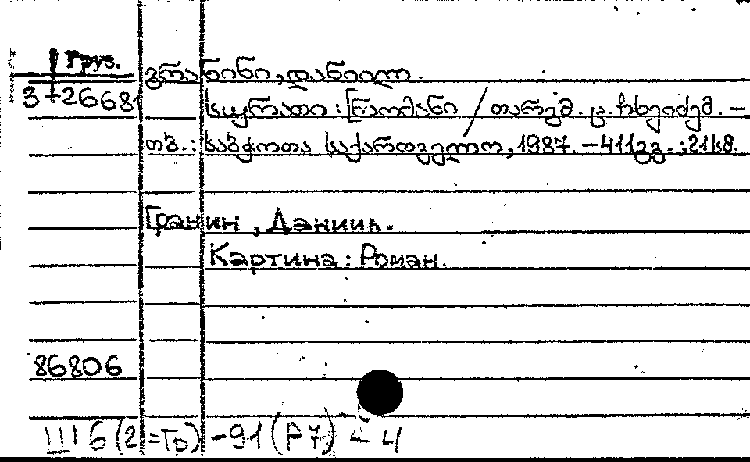 Груз.
გრანინი, დანიილ.
3-2668
სურათი : [რომანი / თარგმ. ც. ჩხეიძემ. –
თბ. : საბჭოთა საქართველო, 1987. – 411გვ. ; 21სმ.
Гранин, Даниил.
Картина : Роман.
86806
Ш6(2=Гр)-91(Р7) - 4